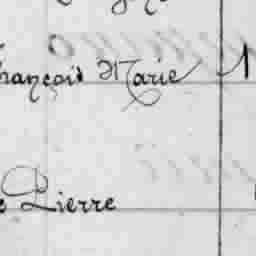 François Marie
Pierre